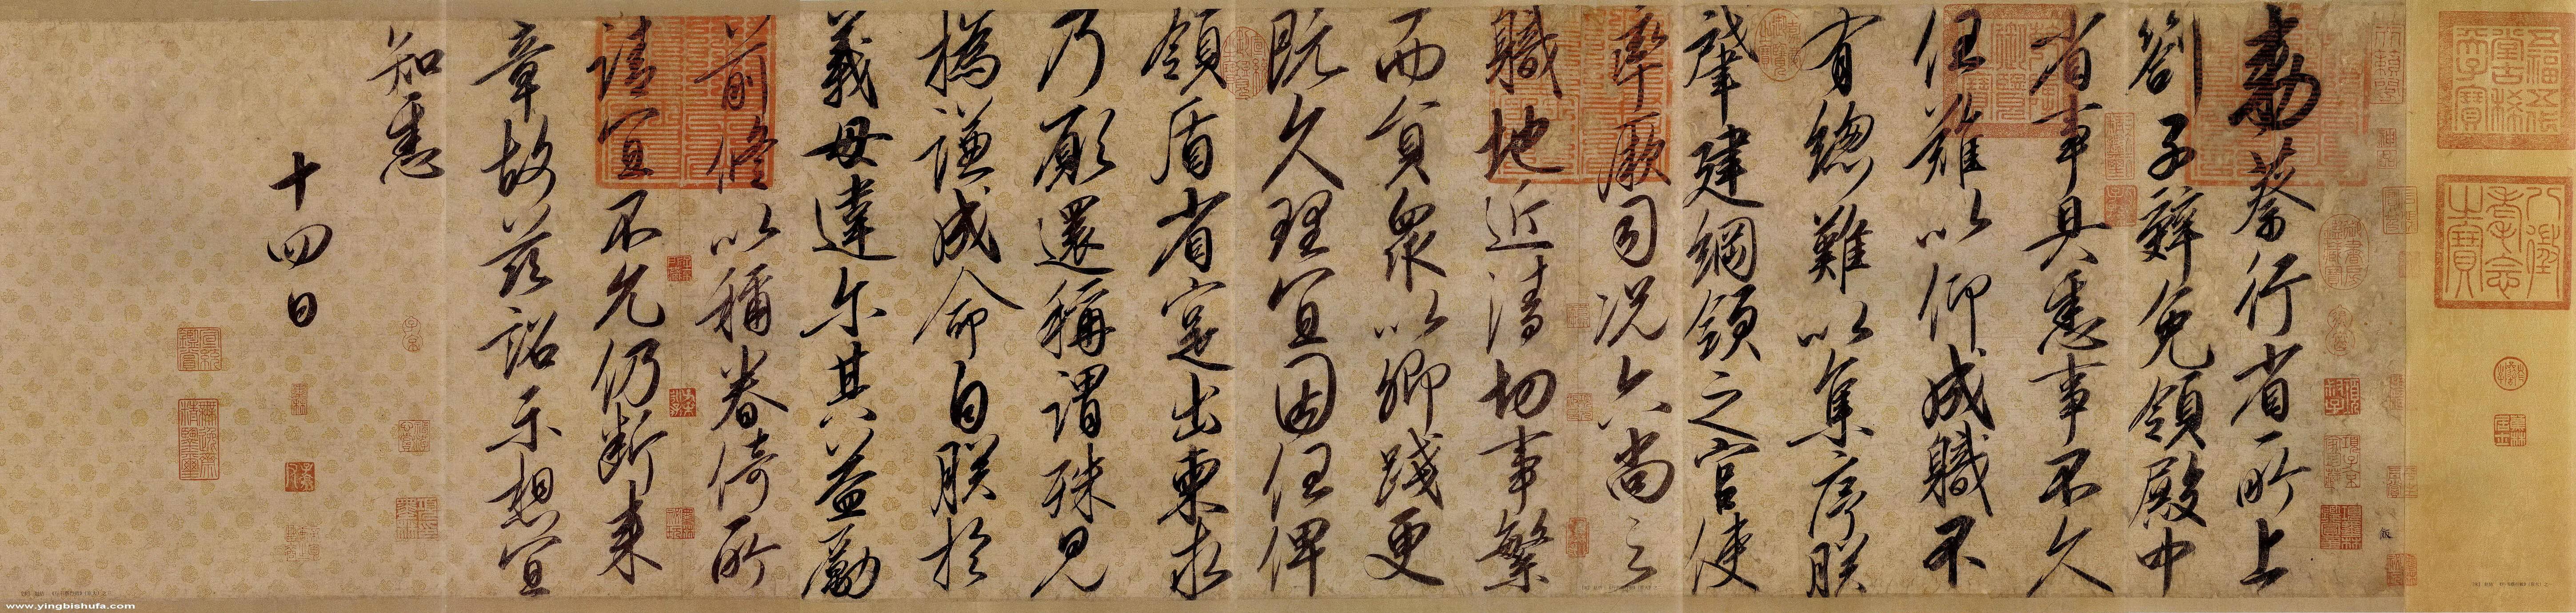 勅蔡行省所上
劄子辭免領殿中
省事具悉事不久
任難以仰成職不
有總難以集序朕
肇建綱領之官使
率厥司況六尚之
職地近清切事繁
而員衆以卿踐更
既久理宜因任俾
領盾省寔出柬求
乃願還稱謂殊見
撝謙成命自朕於
義毋違尓其益勵
前修以稱眷倚所
請宜不允仍斷來
章故茲詔示想宜
知悉
十四日
www.yingbishufa.com